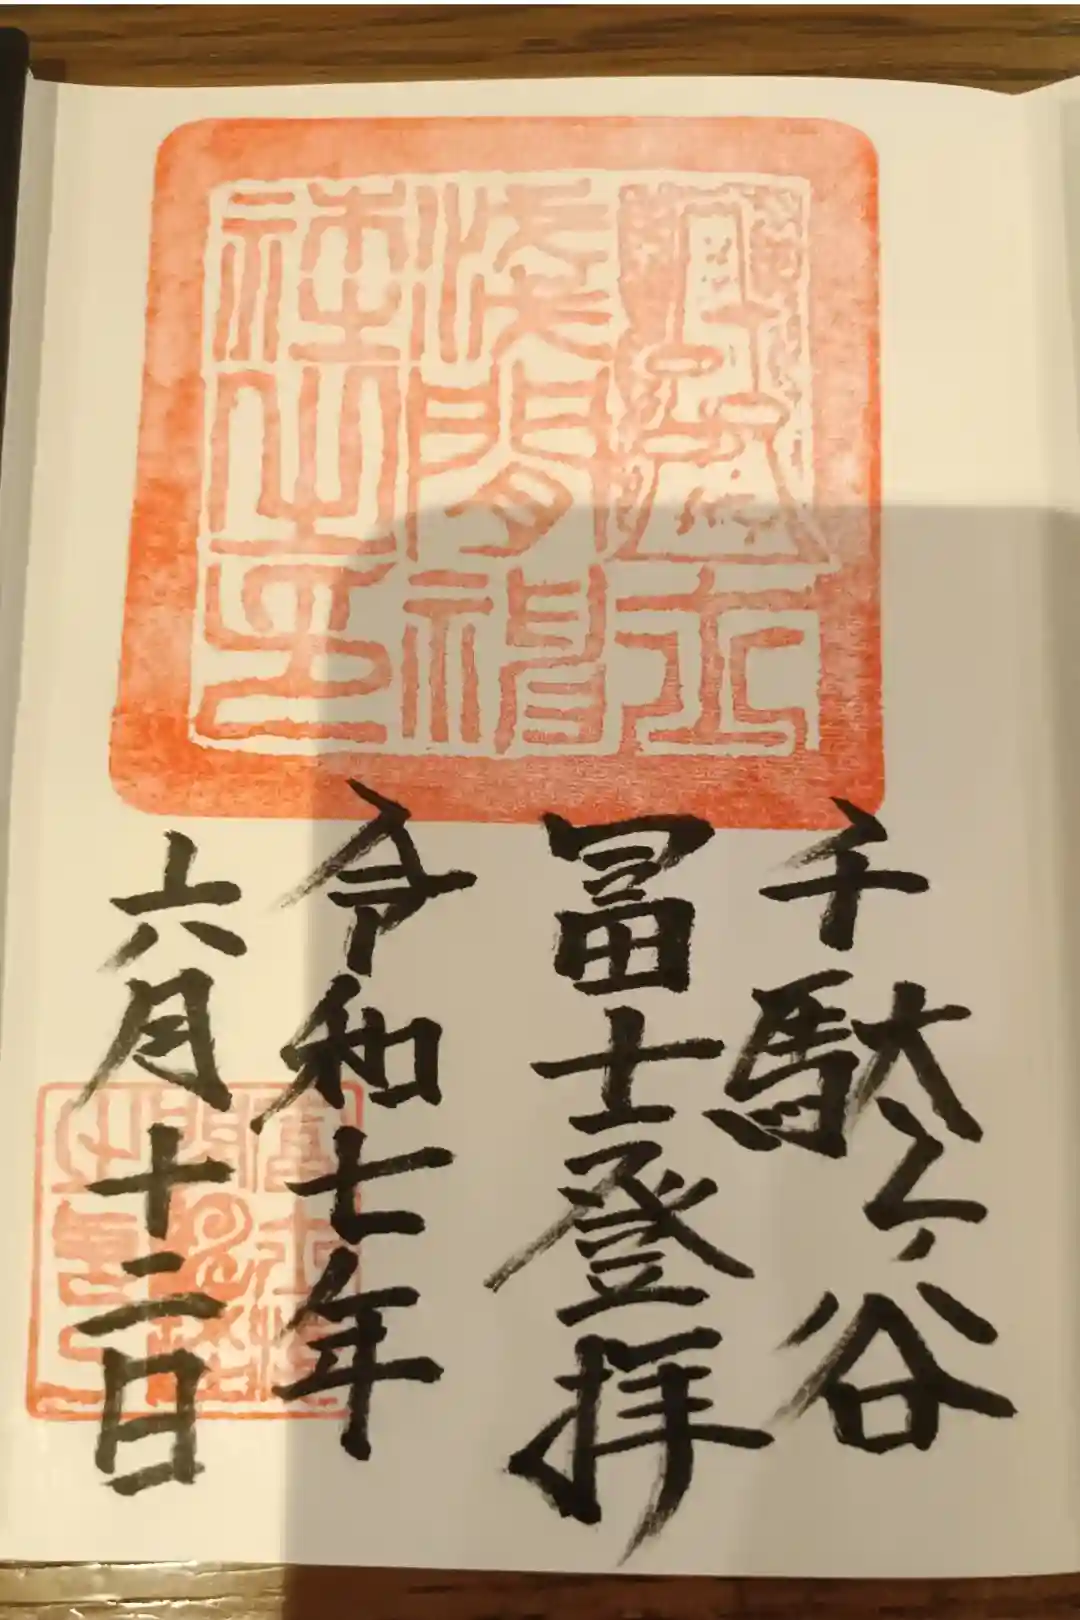 淺間神
社之印
千駄ヶ谷
冨士登拝
令和七年
六月十二日